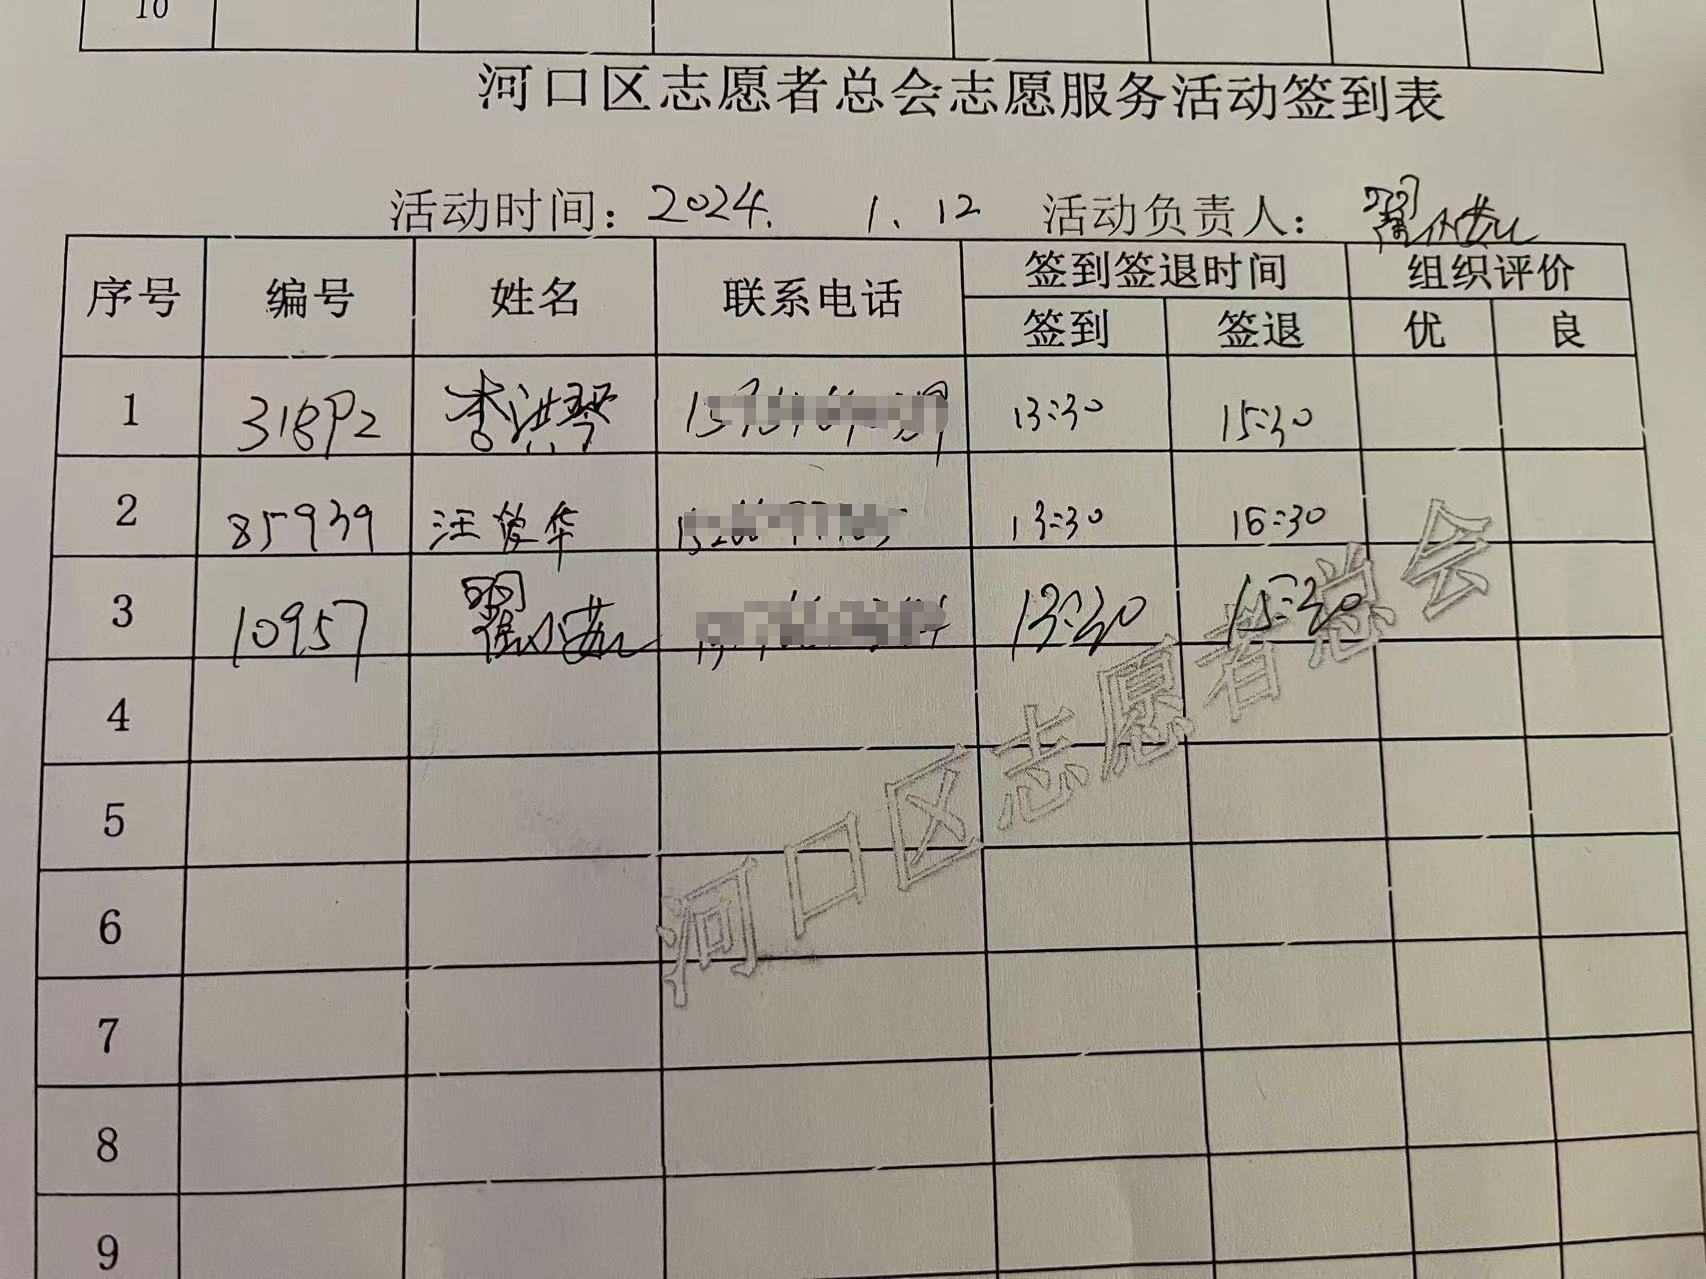 10
河口区志愿者总会志愿服务活动签到表
活动时间：2024. 1.12 活动负责人：
序号 编号 姓名 联系电话 签到签退时间 组织评价
签到 签退 优 良
1 李洪琴 13:30 15:30
2 85939 汪俊华 13:30 15:30
3 10957 13:30 15:30
4
5
6
7
8
9
河口区志愿者总会